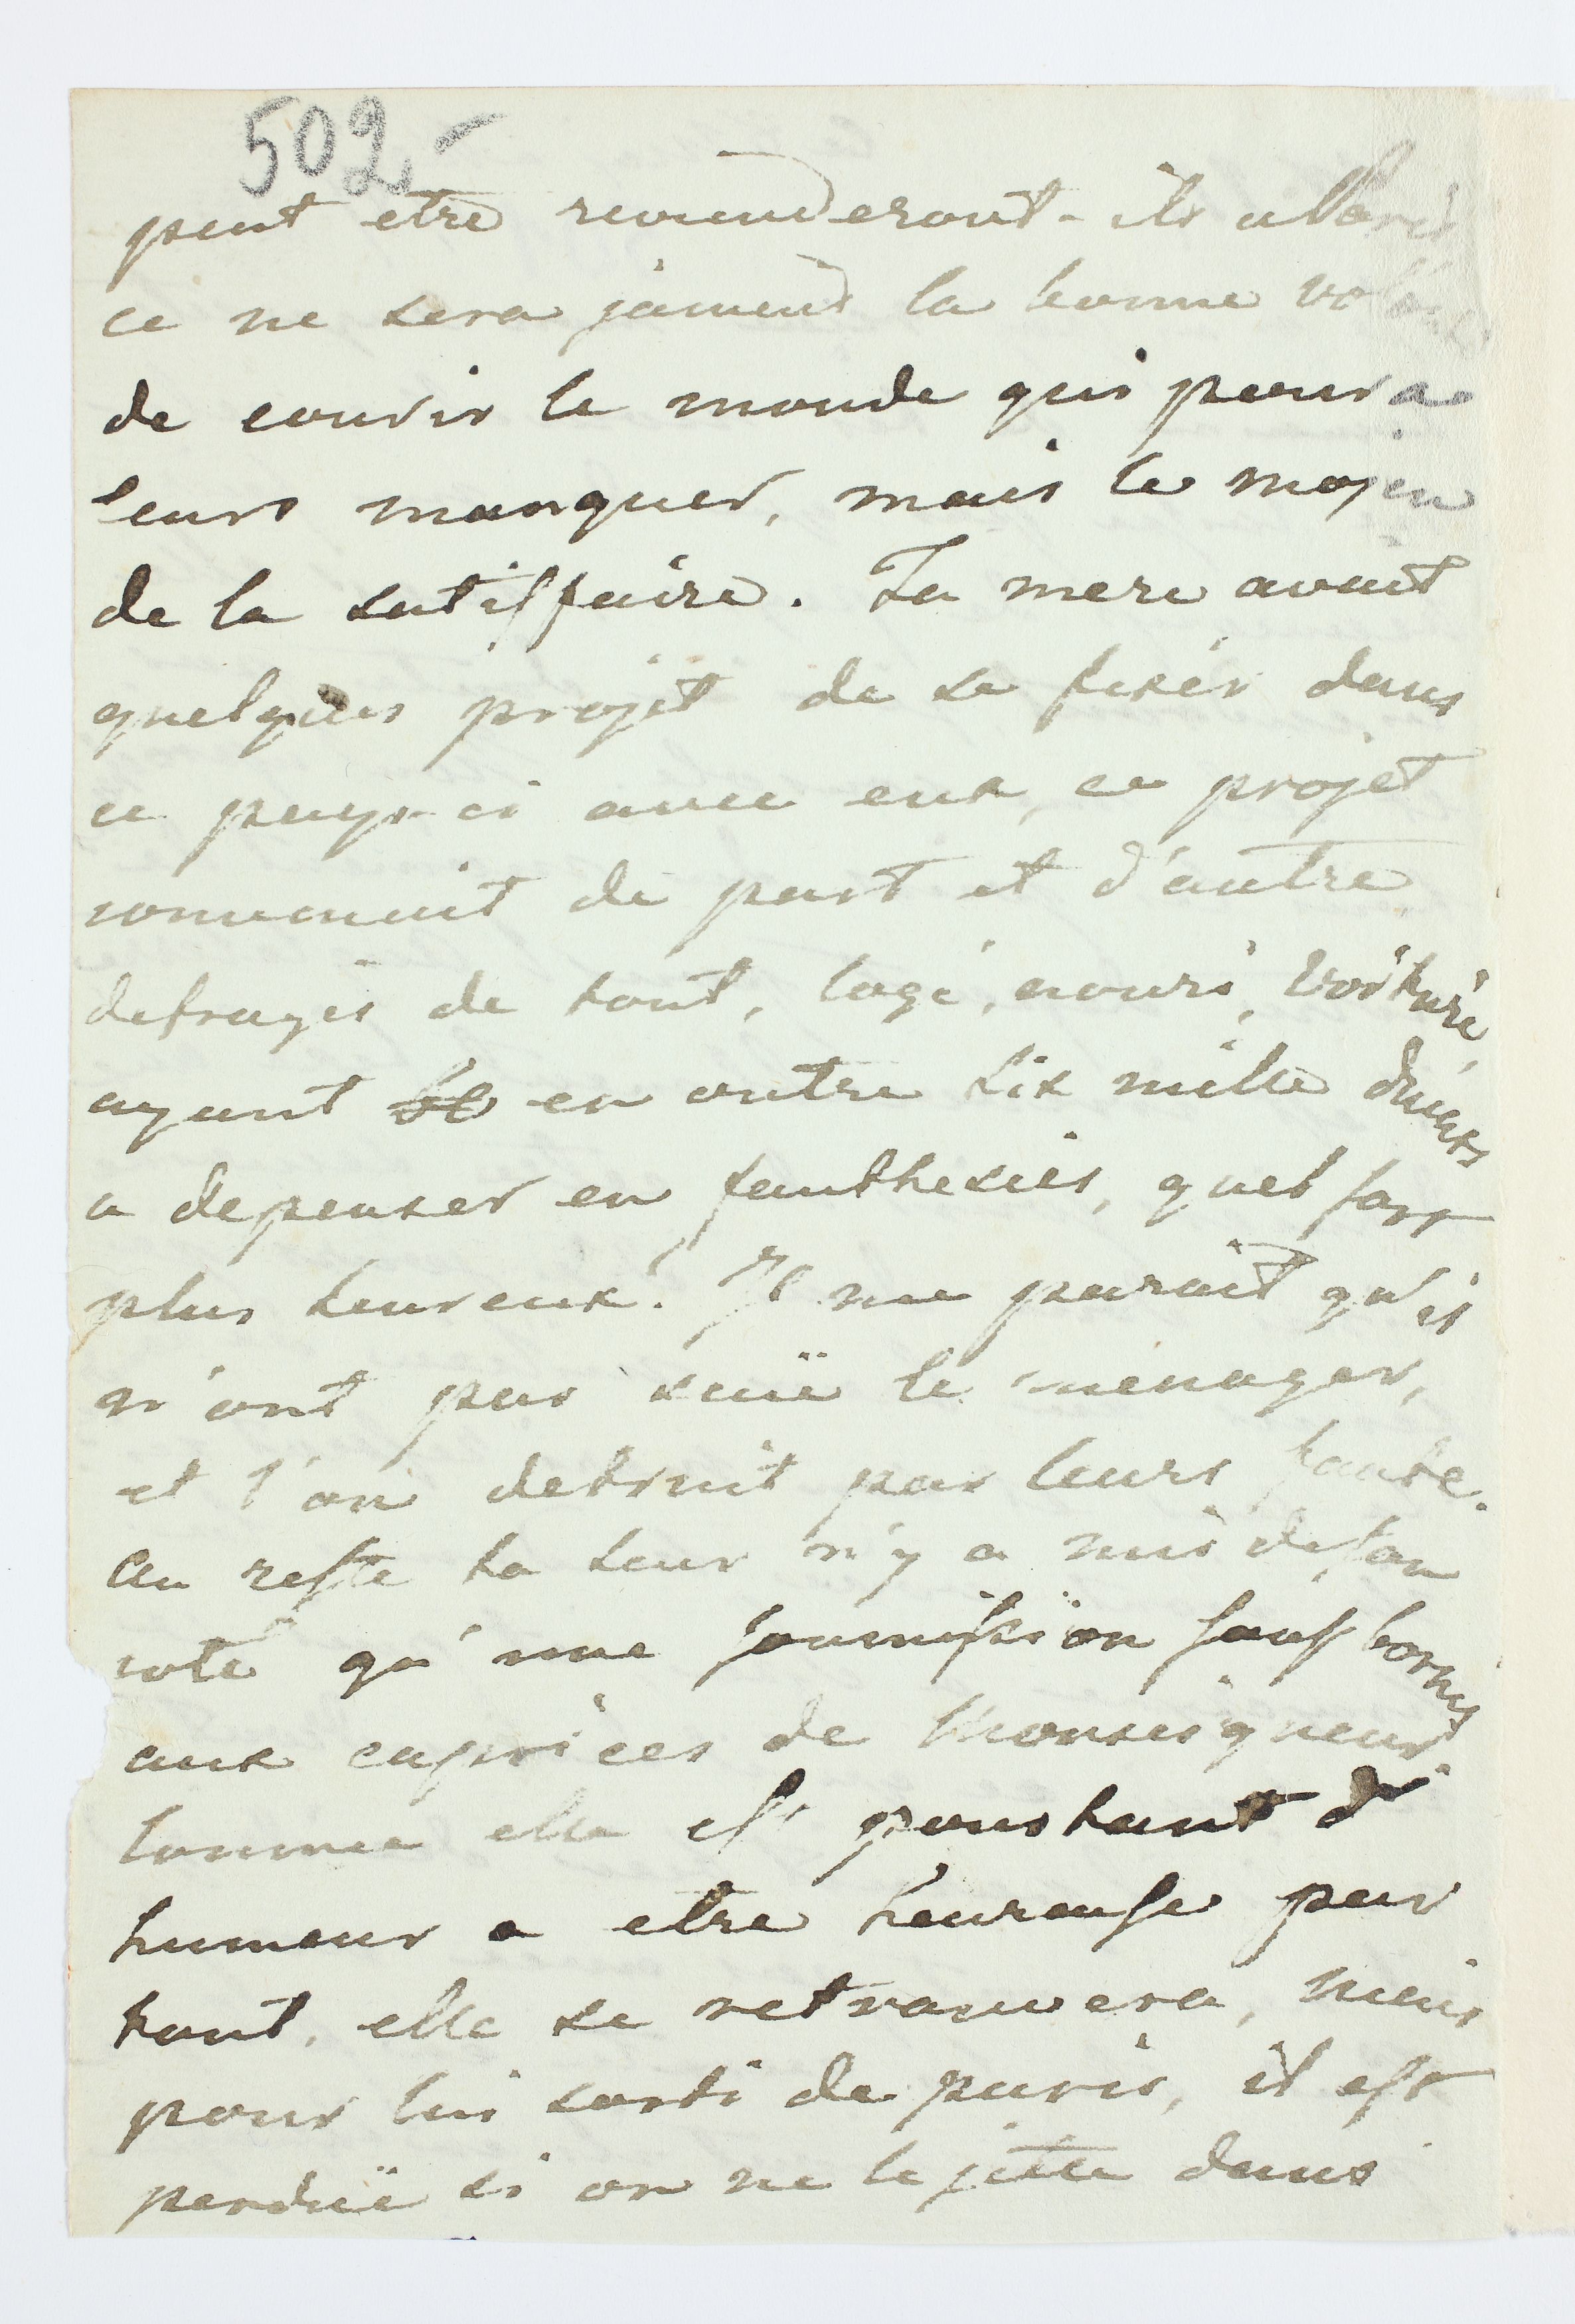 502-
peut etre reviendront-ils alors
ce ne sera jamais la bonne volonté
de courir le monde qui poura
leurs manquer, mais le mojen
de la satisfaire. Ta mere avait
quelques projet de se fixér dans
ce pays-ci avec eux, ce projet
convenait de part et d'autre
defrayés de tout, logé, nouri, voituré,
ayant en outre six mille ducats
a depenser en fanthesies, quel sort
plus heureux! Il me parait qu'il
n'ont pas seüe le menager,
et l'on detruit par leurs faute.
Au reste ta seur n'y a mis de son
coté qu'une soumission sans bornes
aux caprices de Monseigneur.
Comme elle est pourtant d'
humeur a etre heureuse par
tout, elle se retrouvera, mais
pour lui sorti de paris, il est
perdüe si on ne le jette dans